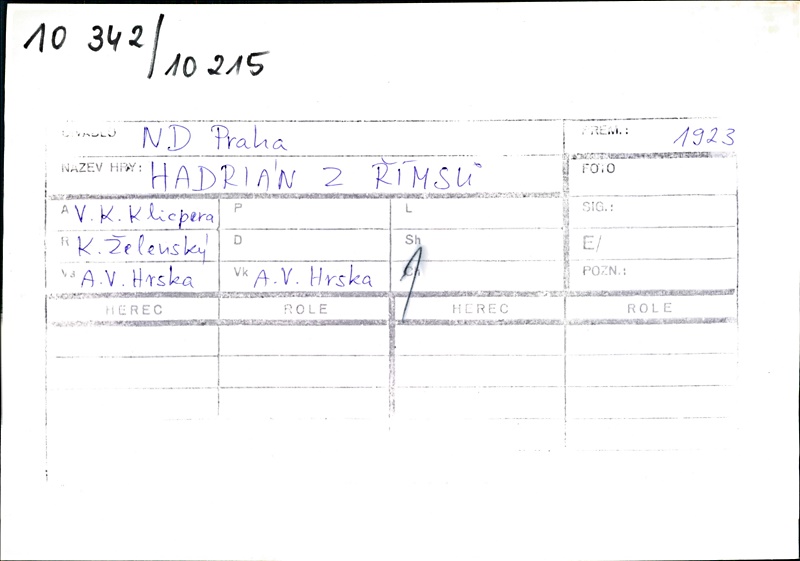 10 342/
10 215
DIVADLO ND Praha PREM.: 1923
NÁZEV HRY: HADRIÁN Z ŘÍMSŮ FOTO
A V. K. Klicpera P L SIG.:
R K. Želenský D Sh E/
Vs A.V. Hrska Vk A.V. Hrska Ch POZN.:
HEREC ROLE HEREC ROLE